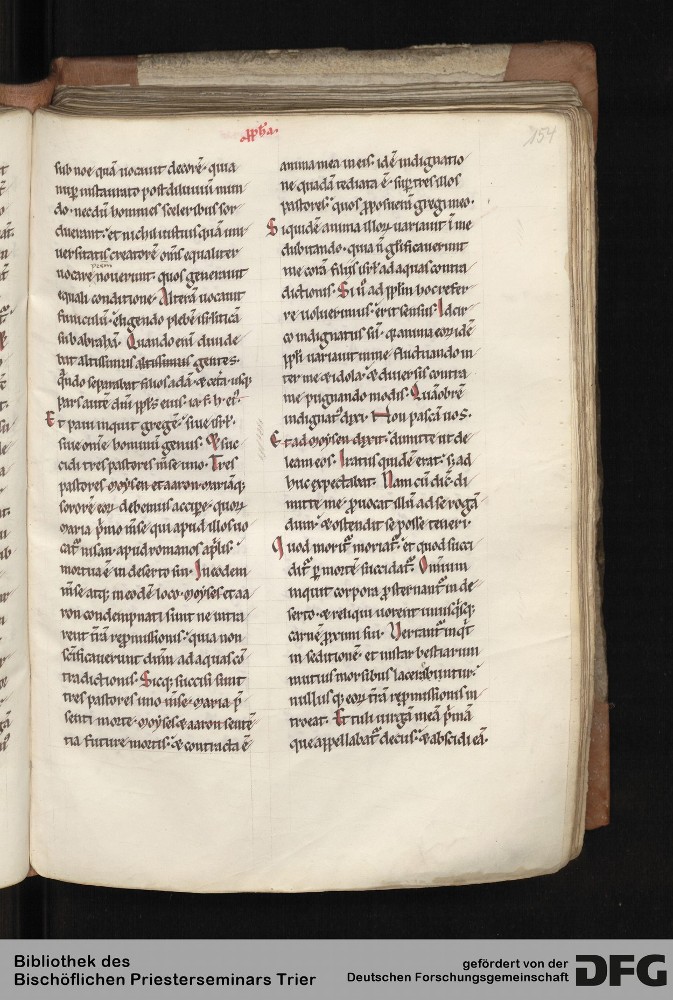 pph̄a.
154
sub noe quā uocauit decorē· quia
nup instaurato post diluuiū mun
do· necdū homines sceleribus sor
duerant· et nichil iustius quā uni
uersitatis creatorē om̄s equaliter
uocare nouerint· quos generauit
equali conditione· Alterā uocauit
funiculū· eligendo plebē isrl̄iticā
sub abrahā· Quando eni diuide
bat altissimus gentes·
qn̄do separabat filios adā· & cet̄a· usq;
pars autē dn̄i ppl̄s eius· ia· f· h· ei'·
Et paui inquit gregē· siue isrl̄·
siue om̄e hominū genus· Et suc
cidi tres pastores m̄se uno· Tres
pastores moysen et aaron mariāq;
sororē eoꝝ debemus accipe· quoꝝ
maria p̄mo m̄se qui apud illos uo
cat' nisan· apud romanos aplis·
mortua ē in deserto sin· In eodem
m̄se atq; in eodē loco· moyses et aa
ron condempnati sunt ne intra
rent t̄rā repmissionis· quia non
sc̄ificauerunt dn̄m ad aquas cō
tradictionis· Sicq; succisi sunt
tres pastores uno m̄se· maria p̄
senti morte· moyses & aaron sentē
tia future mortis· & contracta ē
anima mea in eis· idē indignatio
ne quadā tediata ē· sup tres illos
pastores· quos pposuerā gregi meo·
Siquidē anima illoꝝ uariauit ī me
dubitando· quia n̄ gl̄ificauerunt
me corā filiis isrl̄ ad aquas contra
dictionis· Si ū ad ppl̄m hoc refer
re uoluerimus· erit sensus· Idcir
co indignatus sū· q̄a anima eoꝝ idē
ppl̄i uariauit in me· fluctuando in
ter me & idola· & diuersis contra
me pugnando modis· Quāobrē
indignat' dixi· Non pascā uos·
Et ad moysen dixit· dimitte ut de
leam eos· Iratus quidē erat· s; ad
huc expectabat· Nam cū dic̄· di
mitte me· puocat illū ad se rogā
dum· & ostendit se posse teneri·
Quod morit' moriat'· et quod succi
dit' p mortē succidat'· Omnium
inquit corpora psternant' in de
serto· & reliqui uorent unusq̄sq;
carnē pximi sui· Vertant' inq̄t
in seditionē· et instar bestiarum
mutuis morsibus lacerabuntur·
nullus q; eoꝝ t̄rā repmissionis in
troeat· Et tuli uirgā meā p̄mā
que appellabat' decus· & abscidi eā·
Bibliothek des
Bischöflichen Priesterseminars Trier
gefördert von der
Deutschen Forschungsgemeinschaft
DFG